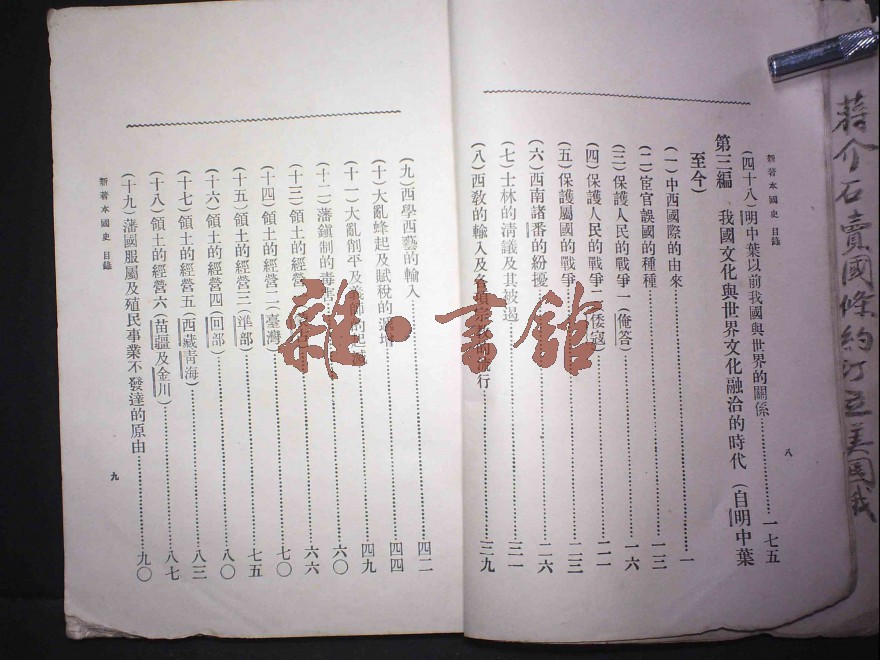 蔣介石賣國條約訂立美国我
新著本國史 目錄
八
(四十八)明中葉以前我國與世界的關係…………一七五
第三編 我國文化與世界文化融洽的時代(自明中葉
至今)
(一)中西國際的由來…………一
(二)宦官誤國的種種…………一三
(三)保護人民的戰爭一(俺答)…………一六
(四)保護人民的戰爭二(倭寇)…………二一
(五)保護屬國的戰爭…………二三
(六)西南諸番的紛擾…………二六
(七)士林的清議及其被遏…………三一
(八)西敎的輸入及各項宗教的流行…………三九
(九)西學西藝的輸入…………四二
(十)大亂蜂起及賦稅的…………四四
(十一)大亂削平及…………四九
(十二)藩鎭制的毒害…………六〇
(十三)領土的經營一…………六六
(十四)領土的經營二(臺灣)…………七〇
(十五)領土的經營三(準部)…………七五
(十六)領土的經營四(回部)…………八〇
(十七)領土的經營五(西藏靑海)…………八三
(十八)領土的經營六(苗疆及金川)…………八七
(十九)藩國服屬及殖民事業不發達的原由…………九〇
新著本國史 目錄
九
雜·書館